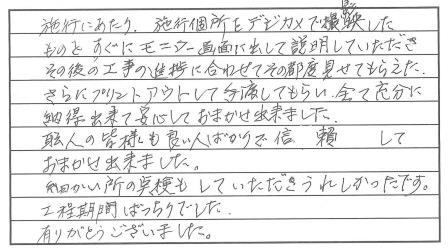 施行にあたり、施行個所をデジカメで撮影した
ものとすぐにモニター画面に出して説明していただき
その後の工事の進捗に合わせてその都度見せてもらえた.
さらにプリントアウトして手渡してもらい、全て充分に
納得出来て安心しておまかせ出来ました.
職人の皆様も良い人ばかりで信頼して
おまかせ出来ました。
細かい所の点検もしていただきうれしかったです。
工程期間ばっちりでした.
有りがとうございました。